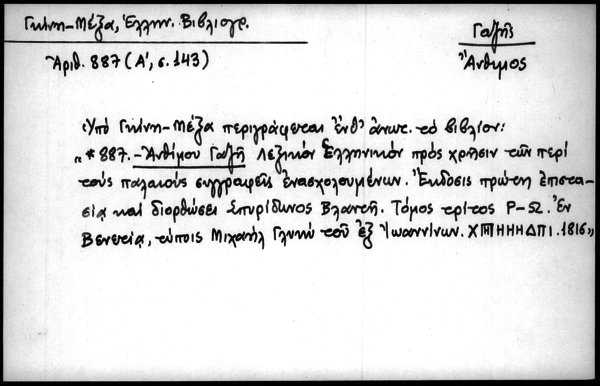 Γκίνη-Μέξα, Ἑλλην. Βιβλιογρ.
Γαζῆς
Ἀριθ. 887 (Α', σ. 143)
Ἄνθιμος
Ὑπό Γκίνη-Μέξα περιγράφεται ἐνθ' ἀνωτ. τό βιβλίον:
„* 887. - Ἀνθίμου Γαζῆ Λεξικόν Ἑλληνικόν πρός χρῆσιν τῶν περί
τούς παλαιούς συγγραφεῖς ἐνασχολουμένων. Ἔκδοσις πρώτη ἐπιστα-
σίᾳ καί διορθώσει Σπυρίδωνος Βλαντῆ. Τόμος τρίτος Ρ-Ω. Ἐν
Βενετίᾳ, τύποις Μιχαήλ Γλυκύ τοῦ ἐξ Ἰωαννίνων. Χ𐅅ΗΗΗΔΠΙ. 1816»